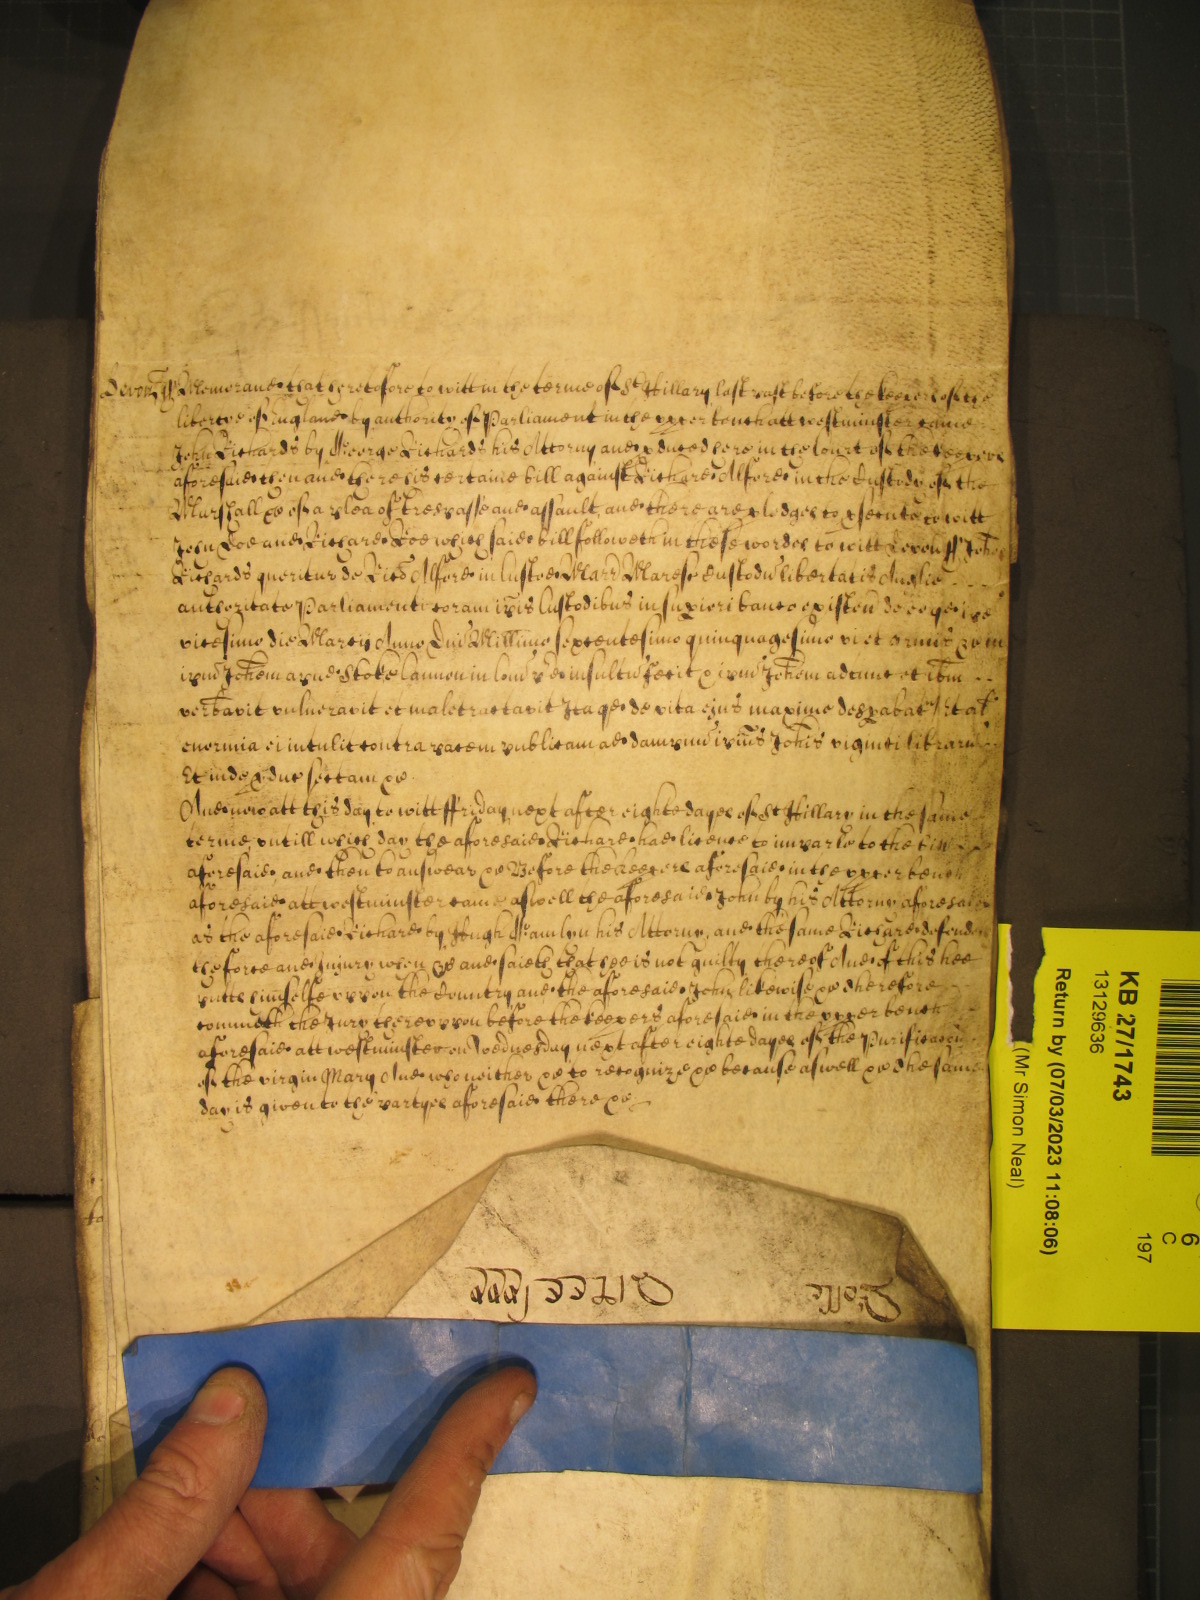 Devon ss Memorand that heretofore to witt in the terme of St Hillary last past before the keepers of the
libertye of England by authority of Parliament in the upper bench att Westminster came
John Richards by George Richards his Attorny and pduced here in the Court of the keepers
aforesaid then and there his certaine bill against Richard Alford in the Custody of the
Marshall &c of a plea of trespasse and assault and there are pledges to psecute to witt
John Doe and Richard Roe which said bill followeth in these wordes to witt Devon ss Johes
Richards queritur de Rico Alford in Custod Marr Maresc Custodu libertatis Anglie
authoritate Parliamenti coram ipis Custodibus in supiori banco existen de eo qd ipe
vicesimo die Marcij Anno Dni Millimo sexcentesimo quinquagesimo vi et armis &c in
ipm Johem apud Stokelannon in Com pd insultu fecit & ipm Johem adtunc et ibm
verbavit vulneravit et maletractavit Ita qd de vita ejus maxime despabat Et al
enormia ei intulit contra pacem publicam ad dampnu ipius Johis viginti libraru
Et inde pduc sectam &c
And now att this day to witt ffriday next after eighte dayes of St Hillary in the same
terme untill which day the aforesaid Richard had licence to imparle to the bill
aforesaid and then to answear &c Before the keepers aforesaid in the upper bench
aforesaid att Westminster came aswell the aforesaid John by his Attorny aforesaid
as the aforesaid Richard by Hugh Hamlyn his Attorny, and the same Richard defendes
the force and Injury when &c and saieth that hee is not guilty thereof And of this hee
putts himselfe uppon the Countrey and the aforesaid John likewise &c Therefore
commeth the Jury thereuppon before the keepers aforesaid in the upper bench
aforesaid att Westminster on Wednesday next after eighte dayes of the Purificacon
of the virgin Mary And who neither &c to recognize &c because aswell &c The same
day is given to the partyes aforesaid there &c
Rolle
KB 27/1743
13129636
Return by (07/03/2023 11:08:06)
(Mr Simon Neal)
6
C
197